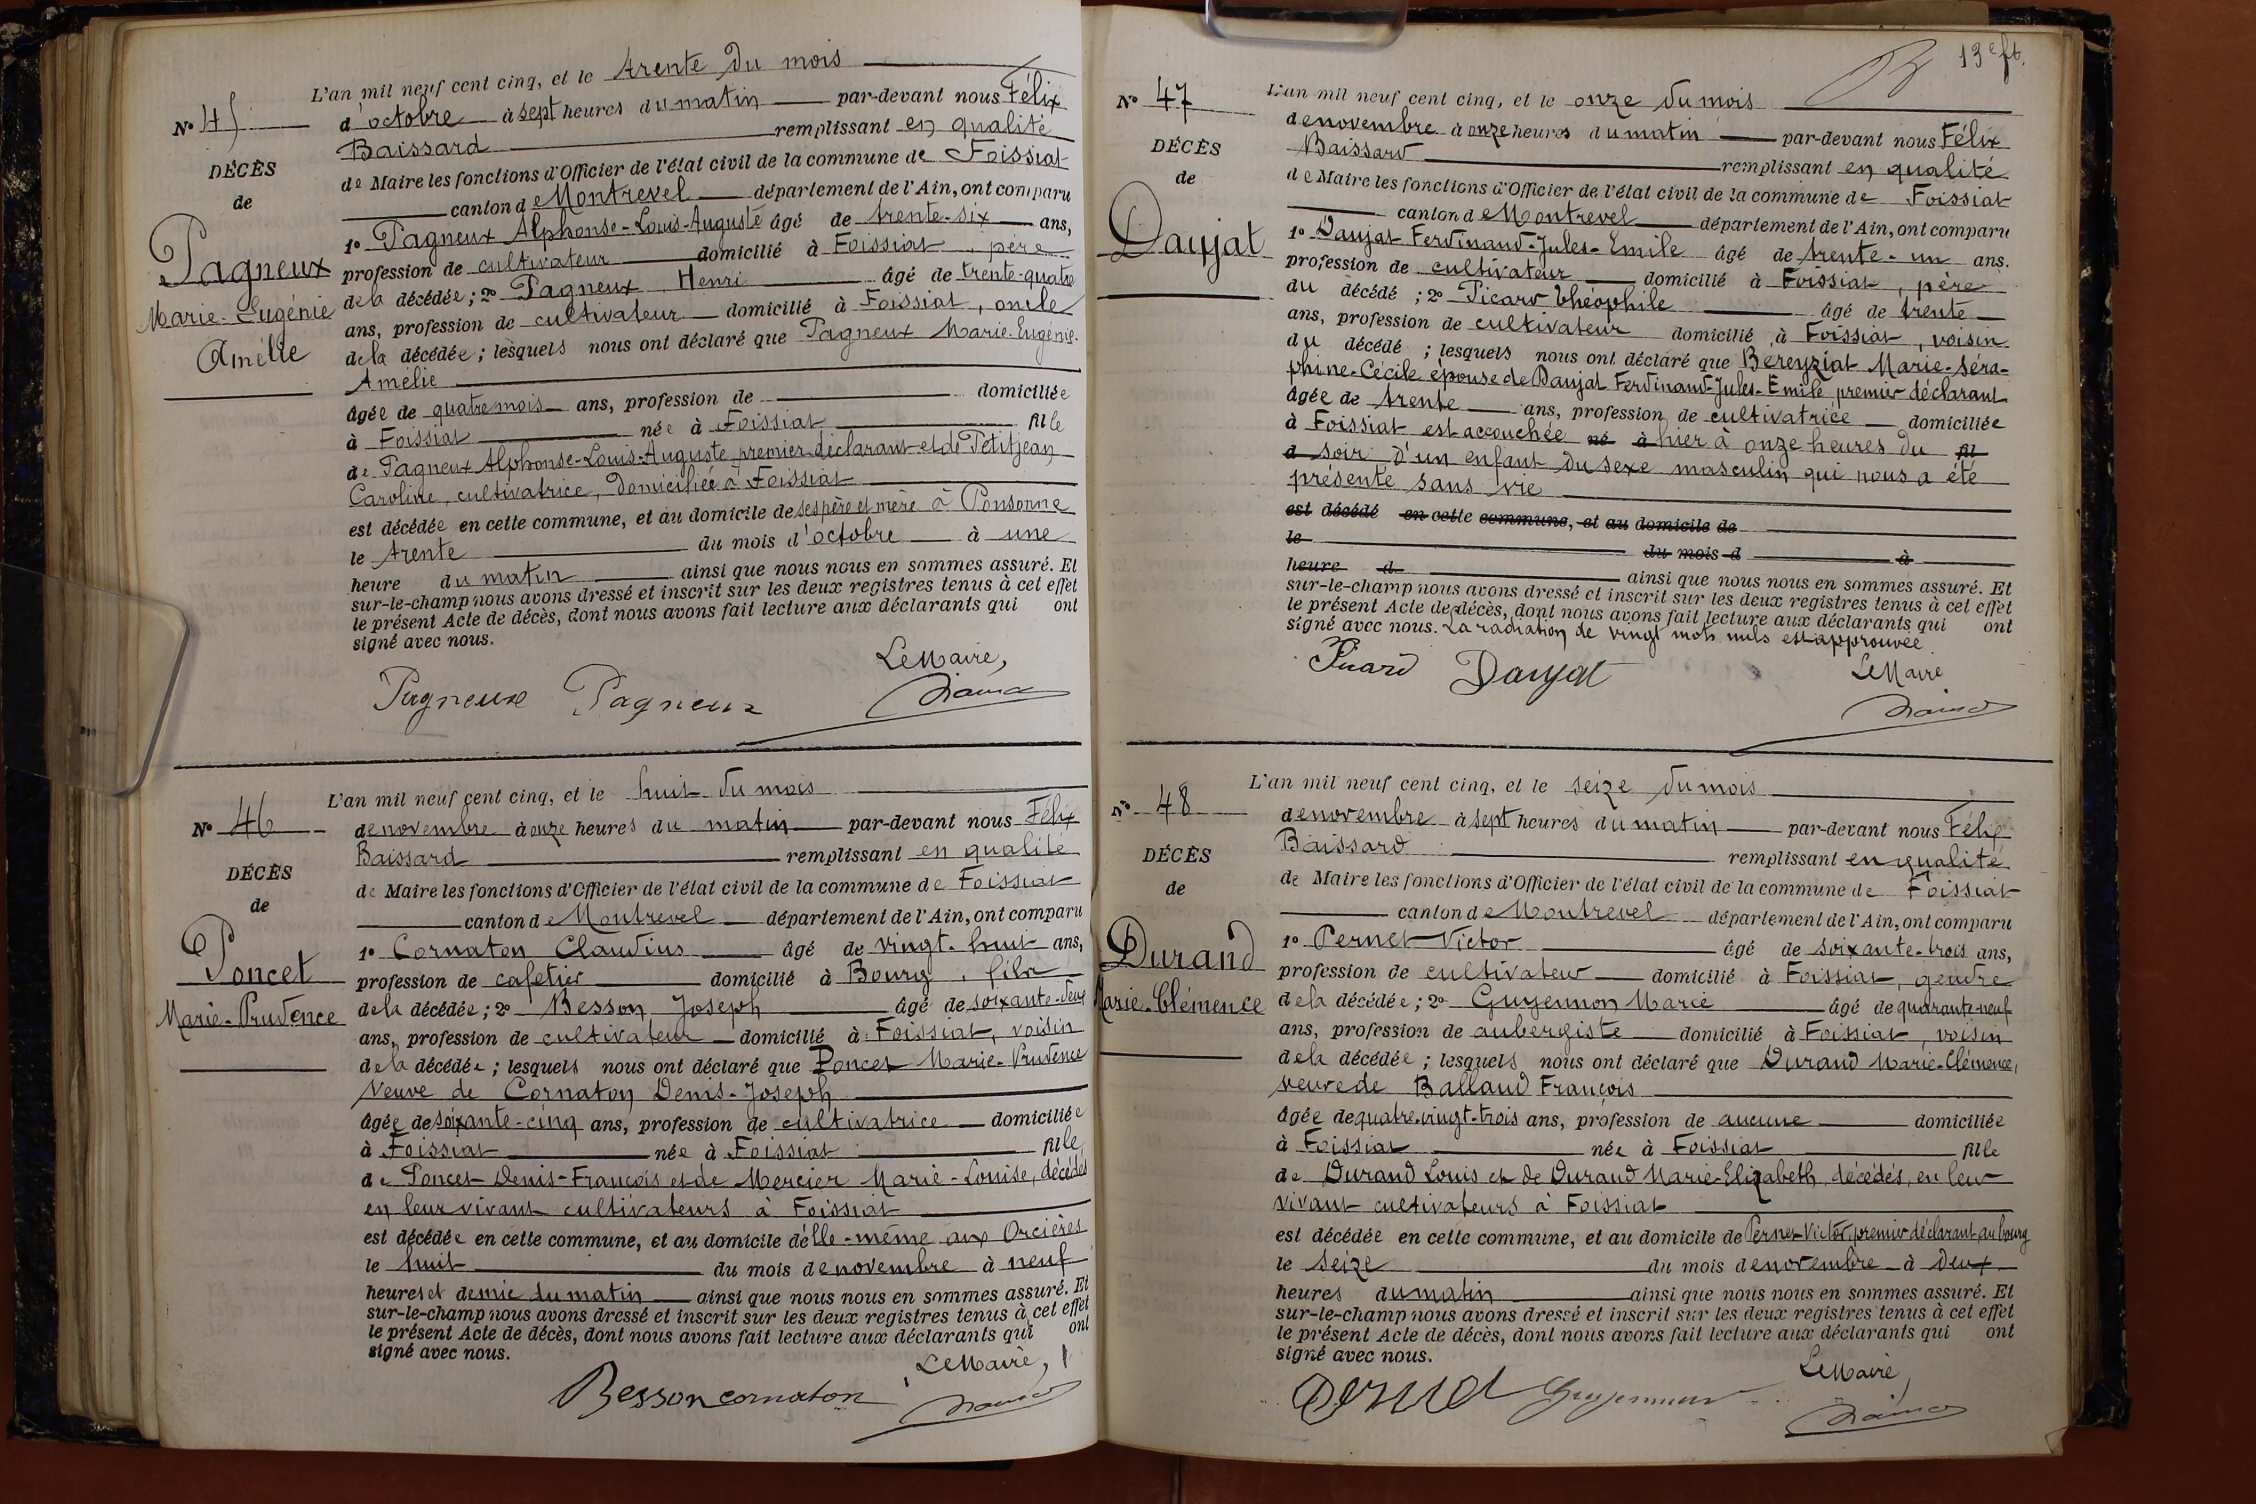 L'an mil neuf cent cinq, et le trente du mois
N° 45
d'octobre à sept heures du matin par-devant nous Félix
Baissard remplissant en qualité
DÉCÈS
de Maire les fonctions d'Officier de l'état civil de la commune de Foissiat
de
canton de Montrevel département de l'Ain, ont comparu
1° Pagneux Alphonse-Louis-Auguste âgé de trente-six ans,
Pagneux
profession de cultivateur domicilié à Foissiat, père
de la décédée ; 2° Pagneux Henri âgé de trente-quatre
Marie-Eugénie
ans, profession de cultivateur domicilié à Foissiat, oncle
Amélie
de la décédée ; lesquels nous ont déclaré que Pagneux Marie-Eugénie-
Amélie
âgée de quatre mois ans, profession de domiciliée
à Foissiat née à Foissiat fille
de Pagneux Alphonse-Louis-Auguste premier déclarant et de Petitjean
Caroline, cultivatrice, domiciliée à Foissiat
est décédée en cette commune, et au domicile de ses père et mère à Ponsonne
le trente du mois d'octobre à une
heure du matin ainsi que nous nous en sommes assuré. Et
sur-le-champ nous avons dressé et inscrit sur les deux registres tenus à cet effet
le présent Acte de décès, dont nous avons fait lecture aux déclarants qui ont
signé avec nous.
Le Maire,
Pagneux Pagneux
L'an mil neuf cent cinq, et le huit du mois
N° 46
de novembre à onze heures du matin par-devant nous Félix
Baissard remplissant en qualité
DÉCÈS
de Maire les fonctions d'Officier de l'état civil de la commune de Foissiat
de
canton de Montrevel département de l'Ain, ont comparu
1° Cornaton Claudius âgé de vingt-huit ans,
Poncet
profession de cafetier domicilié à Bourg, fils
Marie-Prudence
de la décédée ; 2° Besson Joseph âgé de soixante-deux
ans, profession de cultivateur domicilié à Foissiat, voisin
de la décédée ; lesquels nous ont déclaré que Poncet Marie-Prudence
Veuve de Cornaton Denis-Joseph
âgée de soixante-cinq ans, profession de cultivatrice domiciliée
à Foissiat née à Foissiat fille
de Poncet Denis-François et de Mercier Marie-Louise, décédés
en leur vivant cultivateurs à Foissiat
est décédée en cette commune, et au domicile d'elle-même aux Orcières
le huit du mois de novembre à neuf
heures et demie du matin ainsi que nous nous en sommes assuré. Et
sur-le-champ nous avons dressé et inscrit sur les deux registres tenus à cet effet
le présent Acte de décès, dont nous avons fait lecture aux déclarants qui ont
signé avec nous.
Le Maire,
Besson cornaton
13e ft.
N° 47
L'an mil neuf cent cinq, et le onze du mois
de novembre à onze heures du matin par-devant nous Félix
DÉCÈS
Baissard remplissant en qualité
de
de Maire les fonctions d'Officier de l'état civil de la commune de Foissiat
canton de Montrevel département de l'Ain, ont comparu
Daujat
1° Daujat Ferdinand-Jules-Emile âgé de trente-un ans.
profession de cultivateur domicilié à Foissiat, père
du décédé ; 2° Picard Théophile âgé de trente
ans, profession de cultivateur domicilié à Foissiat, voisin
du décédé ; lesquels nous ont déclaré que Bereyziat Marie-Séra-
phine-Cécile épouse de Daujat Ferdinand-Jules-Emile premier déclarant
âgée de trente ans, profession de cultivatrice domiciliée
à Foissiat est accouchée né à hier à onze heures du fil
d soir d'un enfant du sexe masculin qui nous a été
présenté sans vie
est décédé en cette commune, et au domicile de
le du mois d à
heure d ainsi que nous nous en sommes assuré. Et
sur-le-champ nous avons dressé et inscrit sur les deux registres tenus à cet effet
le présent Acte de décès, dont nous avons fait lecture aux déclarants qui ont
signé avec nous. La radiation de vingt mots nuls est approuvée
Le Maire
Picard Daujat
N° 48
L'an mil neuf cent cinq, et le seize du mois
de novembre à sept heures du matin par-devant nous Félix
Baissard remplissant en qualité
DÉCÈS
de Maire les fonctions d'Officier de l'état civil de la commune de Foissiat
de
canton de Montrevel département de l'Ain, ont comparu
1° Pernet Victor âgé de soixante-trois ans,
Durand
profession de cultivateur domicilié à Foissiat, gendre
Marie-Clémence
de la décédée ; 2° Guyennon Marie âgé de quarante-neuf
ans, profession de aubergiste domicilié à Foissiat, voisin
de la décédée ; lesquels nous ont déclaré que Durand Marie-Clémence,
veuve de Balland François
âgée de quatre-vingt-trois ans, profession de aucune domiciliée
à Foissiat née à Foissiat fille
de Durand Louis et de Durand Marie-Elizabeth, décédés, en leur
vivant cultivateurs à Foissiat
est décédée en cette commune, et au domicile de Pernet Victor, premier déclarant au bourg
le seize du mois de novembre à deux
heures du matin ainsi que nous nous en sommes assuré. Et
sur-le-champ nous avons dressé et inscrit sur les deux registres tenus à cet effet
le présent Acte de décès, dont nous avons fait lecture aux déclarants qui ont
signé avec nous.
Le Maire,
Pernet Guyennon